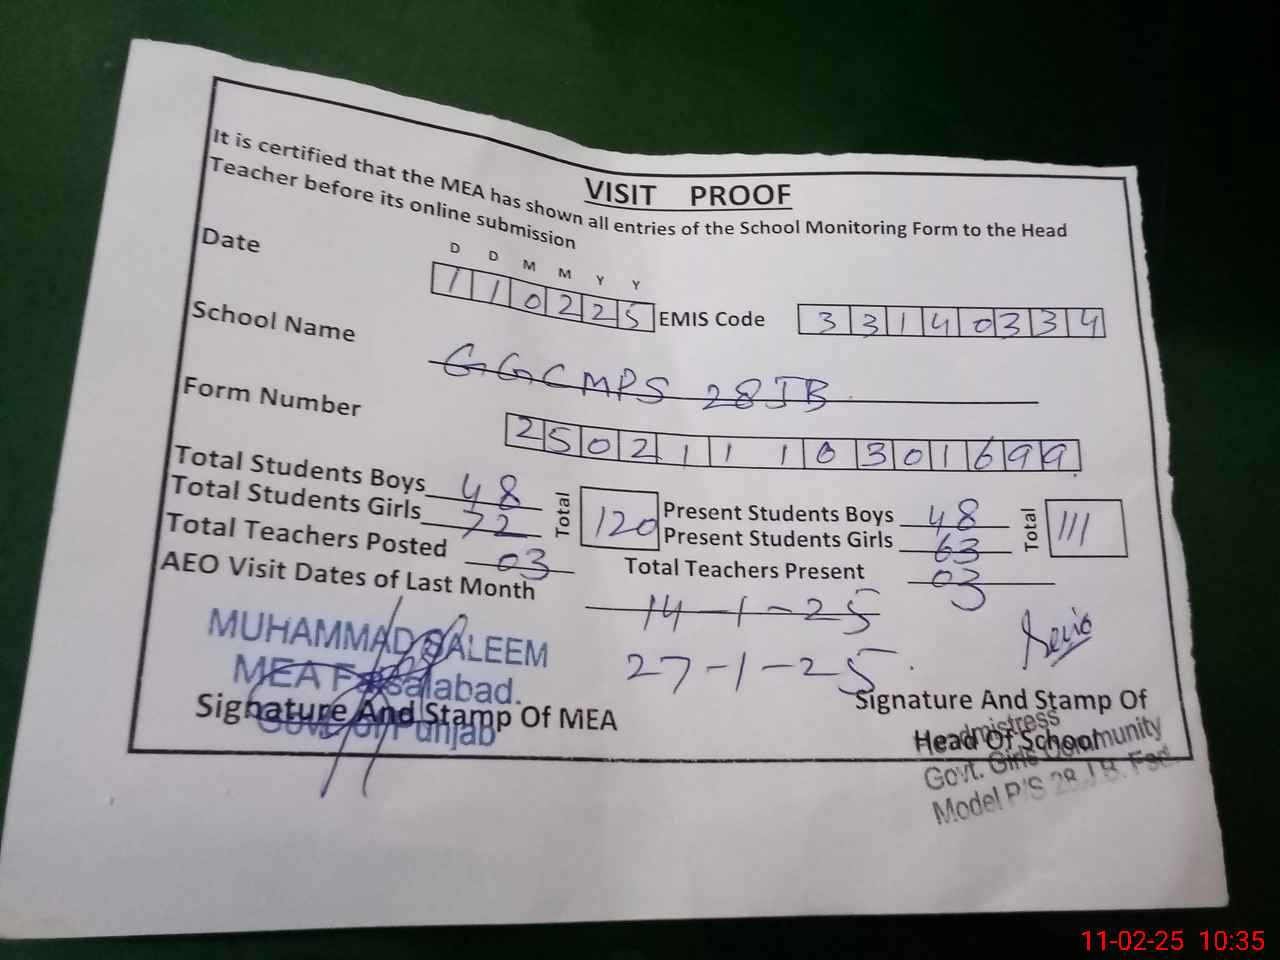 VISIT PROOF
It is certified that the MEA has shown all entries of the School Monitoring Form to the Head
Teacher before its online submission
D D M M Y Y
Date 110225 EMIS Code 33140334
School Name GGCMPS 28JB
Form Number 25021110301699
Total Students Boys 48 Total 120 Present Students Boys 48 Total 111
Total Students Girls 72 Present Students Girls 63
Total Teachers Posted 03 Total Teachers Present 03
AEO Visit Dates of Last Month 14-1-25
27-1-25
MUHAMMAD SALEEM
MEA Faisalabad.
Govt. of Punjab
Signature And Stamp Of MEA
Signature And Stamp Of
Head Of School
Headmistress
Govt. Girls Community
Model P/S 28 J.B. Fsd.
11-02-25 10:35